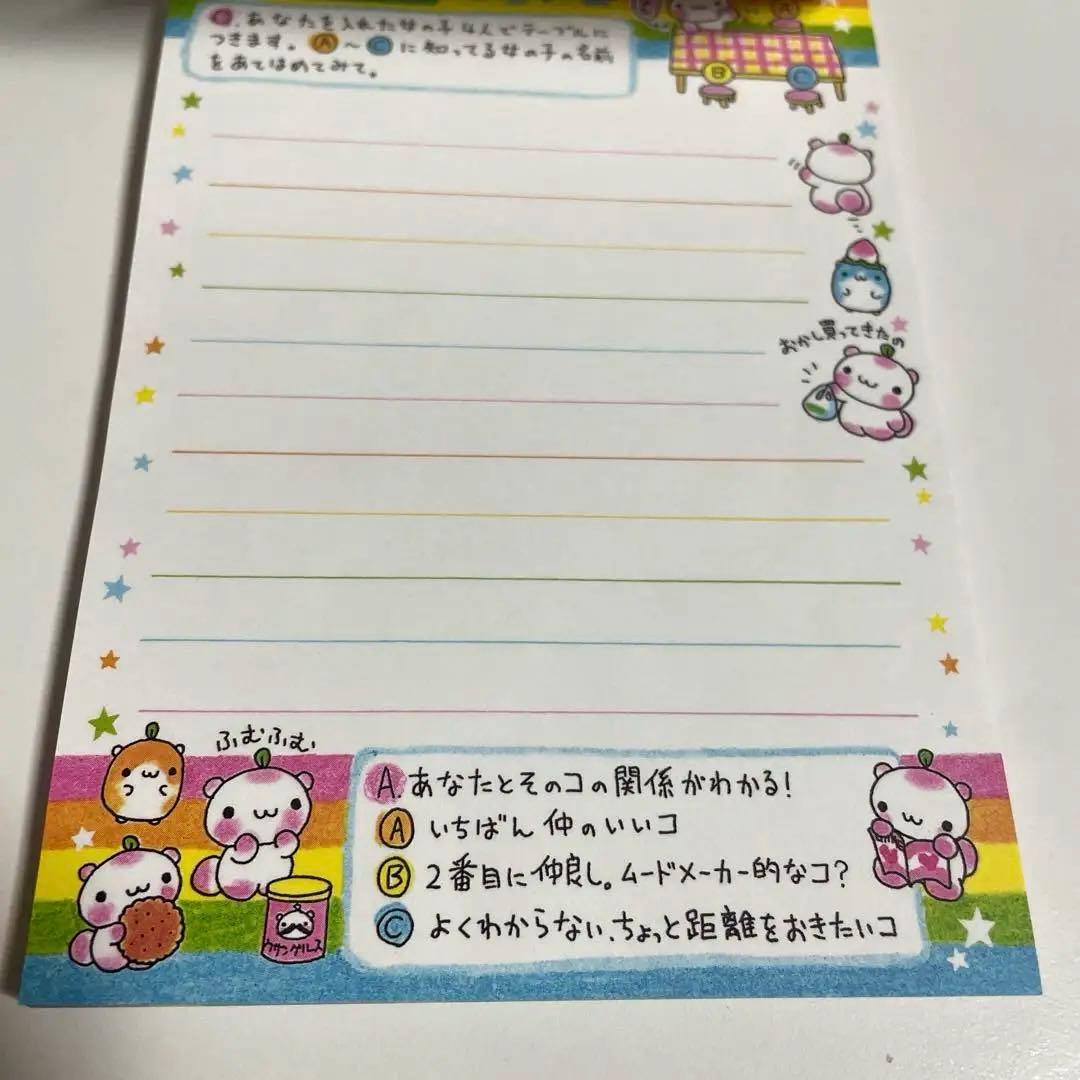 Q.あなたを入れた女の子4人でテーブルに
つきます。Ⓐ〜Ⓒに知ってる女の子の名前
をあてはめてみて。
A
B
C
おかし買ってきたの
ふむふむ
A.あなたとそのコの関係がわかる!
Ⓐ いちばん仲のいいコ
Ⓑ 2番目に仲良し。ムードメーカー的なコ?
Ⓒ よくわからない、ちょっと距離をおきたいコ
ウサンゲルス